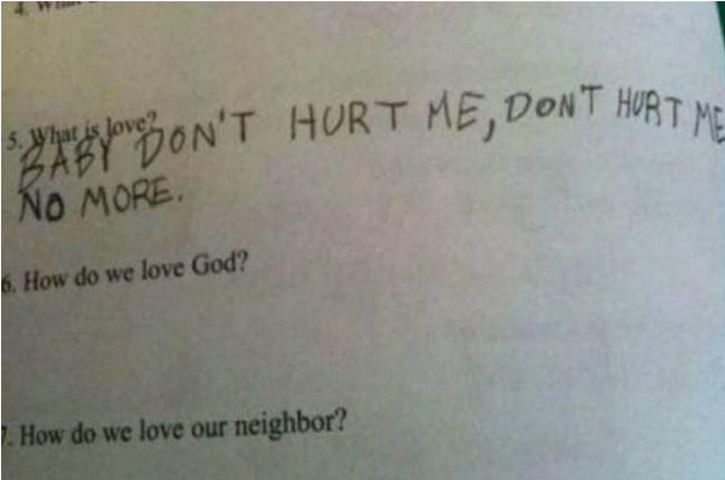 5. What is love?
BABY DON'T HURT ME, DON'T HURT ME
NO MORE.
6. How do we love God?
7. How do we love our neighbor?